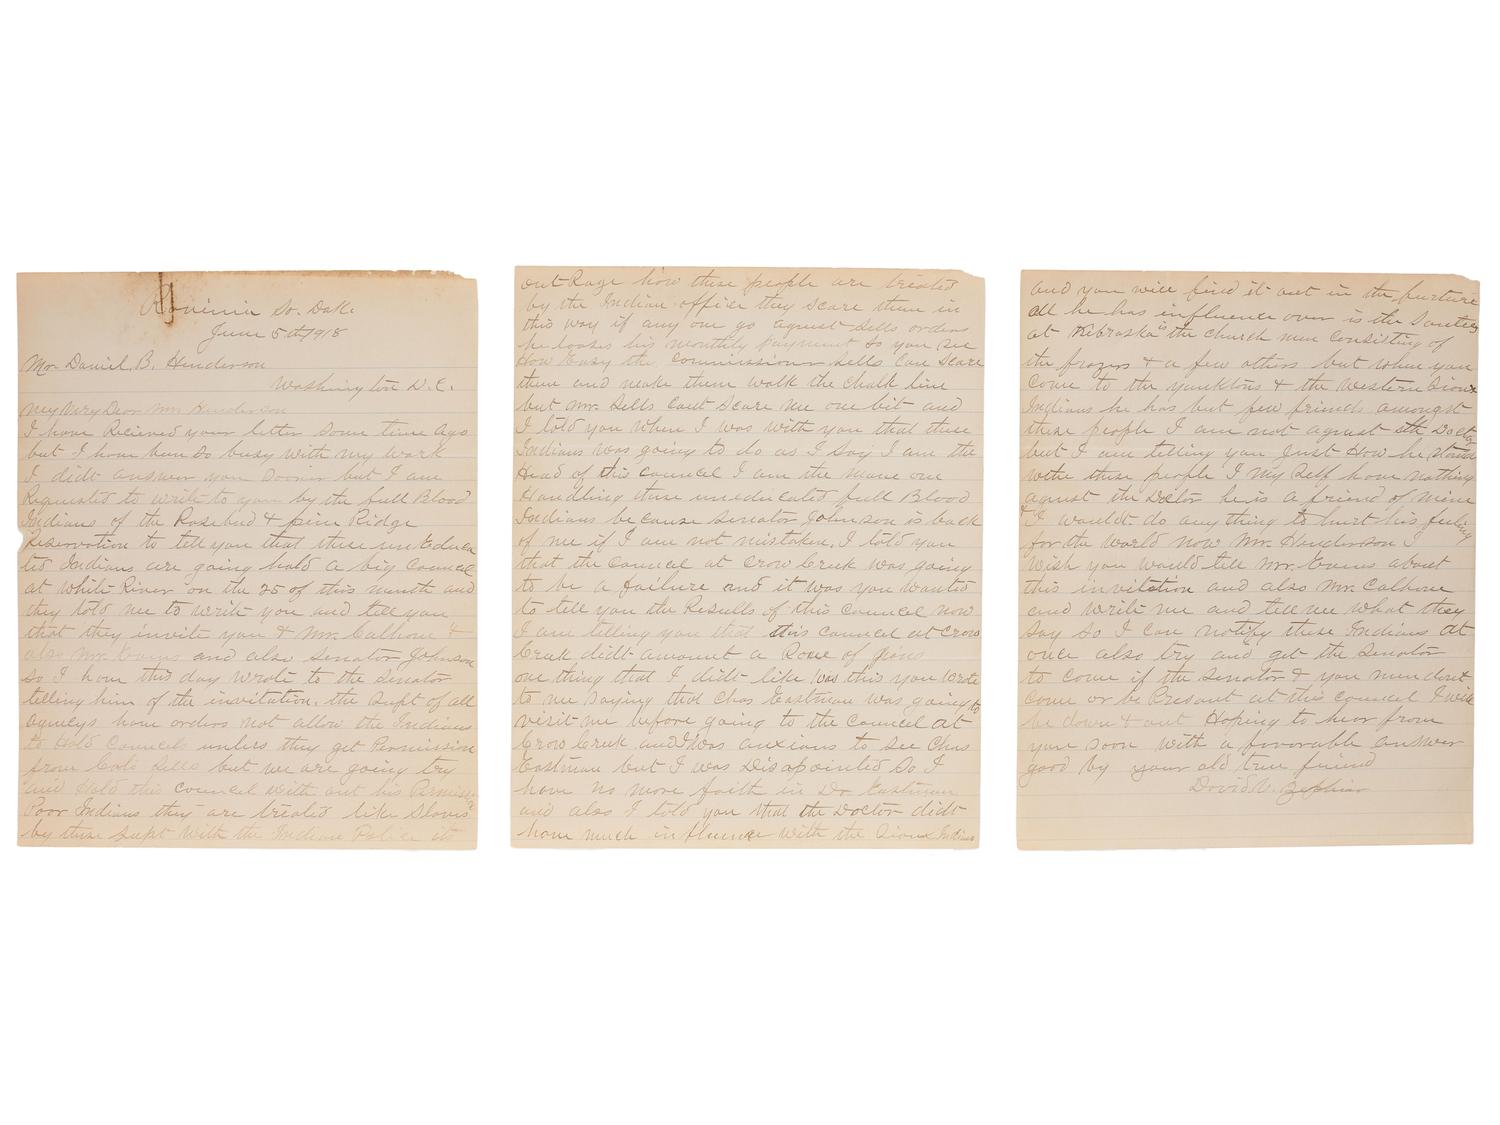 Ravinia So. Dak.
June 5th 1918
Mr. Daniel B. Henderson
Washington D.C.
My Very Dear Mr. Henderson
I have Recieved your letter some time ago
but I have been so busy with my work
I didt answer you sooner but I am
Requested to write to you by the full Blood
Indians of the Rosebud & pine Ridge
Reservation to tell you that these un Educa
ted Indians are going hold a big Council
at White River on the 25 of this month and
they told me to write you and tell you
that they invite you & Mr. Calhoun &
also Mr. Evans and also Senator Johnson
so I have this day wrote to the senator
telling him of the invitation. the Supt of all
agencys have orders not allow the Indians
to Hold Councils unless they get Permission
from Cato Sells but we are going try
and Hold this council with out his Permission
Poor Indians they are treated like Slaves
by these Supt with the Indian Police it
out Rage how these people are treated
by the Indian office they scare them in
this way if any one go agenst sells orders
he looses his monthly payment so you see
How Easy the commissioner sells can scare
them and make them walk the chalk line
but Mr. Sells cant scare me one bit and
I told you when I was with you that these
Indians was going to do as I say I am the
Head of this council I am the mane one
Handling these uneducated full Blood
Indians because senator Johnson is back
of me if I am not mistaken. I told you
that the council at Crow Creek was going
to be a failure and it was you wanted
to tell you the Results of this council now
I am telling you that this council at Crow
Creek didt amount a Rone of pins
one thing that I didt like was this you wrote
to me saying that Chas Eastman was going to
visit me before going to the council at
Crow Creek and I was anxious to see Chas
Eastman but I was Disapointed so I
have no more faith in Dr Eastman
and also I told you that the Doctor didt
have much influence with the Sioux Indians
and you will find it out in the furture
all he has influence over is the Santees
at Nebraska is the church men consisting of
the frazers & a few others but when you
come to the yanktons & the western Sioux
Indians he has but few friends amongst
these people I am not agenst the Doctor
but I am telling you Just How he stands
with these people I my self have nothing
agenst the Doctor he is a friend of mine
& I wouldt do any thing to hurt his feeling
for the world now Mr. Henderson I
wish you would tell Mr. Evans about
this invitation and also Mr. Calhoun
and write me and tell me what they
say so I can notify these Indians at
once also try and get the senator
to come if the senator & you men dont
come or be Present at this council I will
be down & out Hoping to hear from
you soon with a favorable answer
good by your old true friend
David Zephier